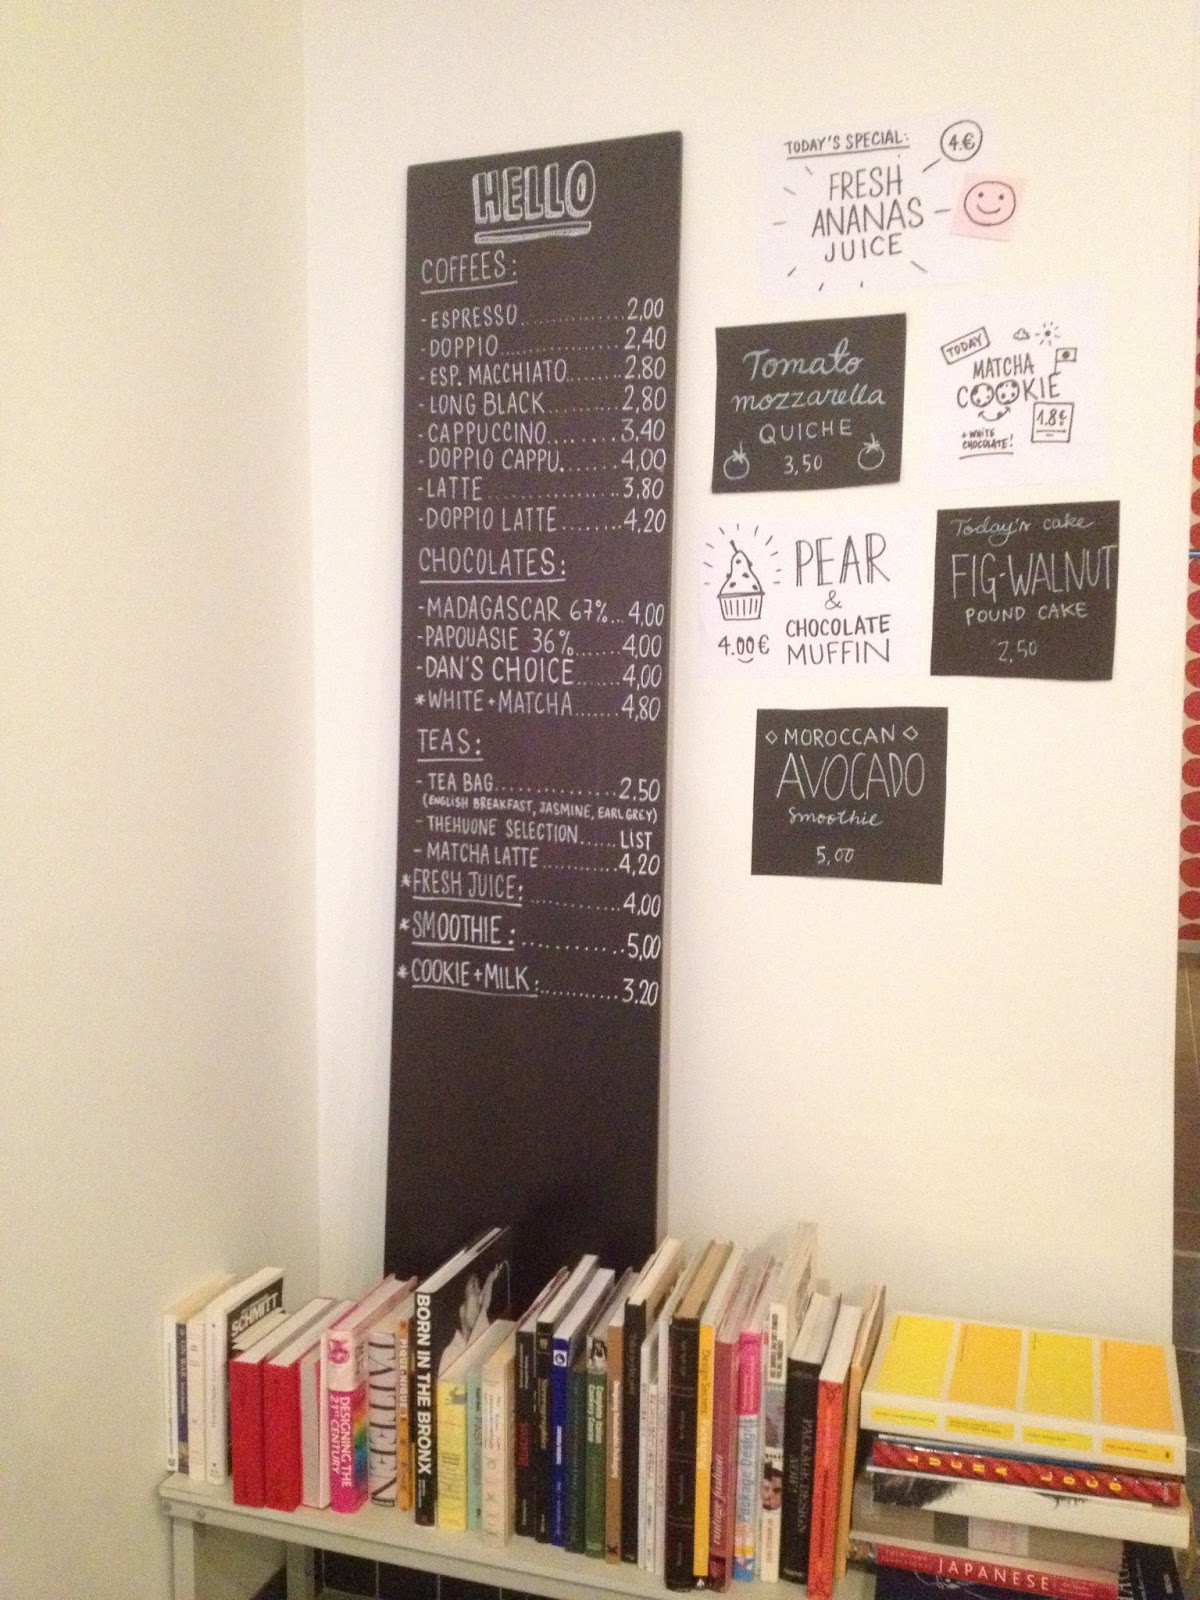 HELLO
COFFEES:
-ESPRESSO................2,00
-DOPPIO...................2,40
-ESP. MACCHIATO........2,80
-LONG BLACK..........2,80
-CAPPUCCINO.........3,40
-DOPPIO CAPPU........4,00
-LATTE...................3,80
-DOPPIO LATTE........4,20
CHOCOLATES:
-MADAGASCAR 67%...4,00
-PAPOUASIE 36%.......4,00
-DAN'S CHOICE.......4,00
*WHITE+MATCHA.......4,80
TEAS:
-TEA BAG................2,50
(ENGLISH BREAKFAST, JASMINE, EARL GREY)
-THEHUONE SELECTION......LIST
-MATCHA LATTE...........4,20
*FRESH JUICE:...........4,00
*SMOOTHIE:............5,00
*COOKIE+MILK:...........3.20
TODAY'S SPECIAL:
4.€
FRESH
ANANAS
JUICE
Tomato
mozzarella
QUICHE
3,50
TODAY
MATCHA
COOKIE
+ WHITE
CHOCOLATE!
1.8€
PEAR
&
CHOCOLATE
MUFFIN
4.00€
Today's cake
FIG-WALNUT
POUND CAKE
2,50
MOROCCAN
AVOCADO
Smoothie
5,00
SCHMITT
DESIGNING THE
21ST CENTURY
BORN IN THE BRONX
Package Design
PACKAGE DESIGN
LUCHA LOCO
JAPANESE